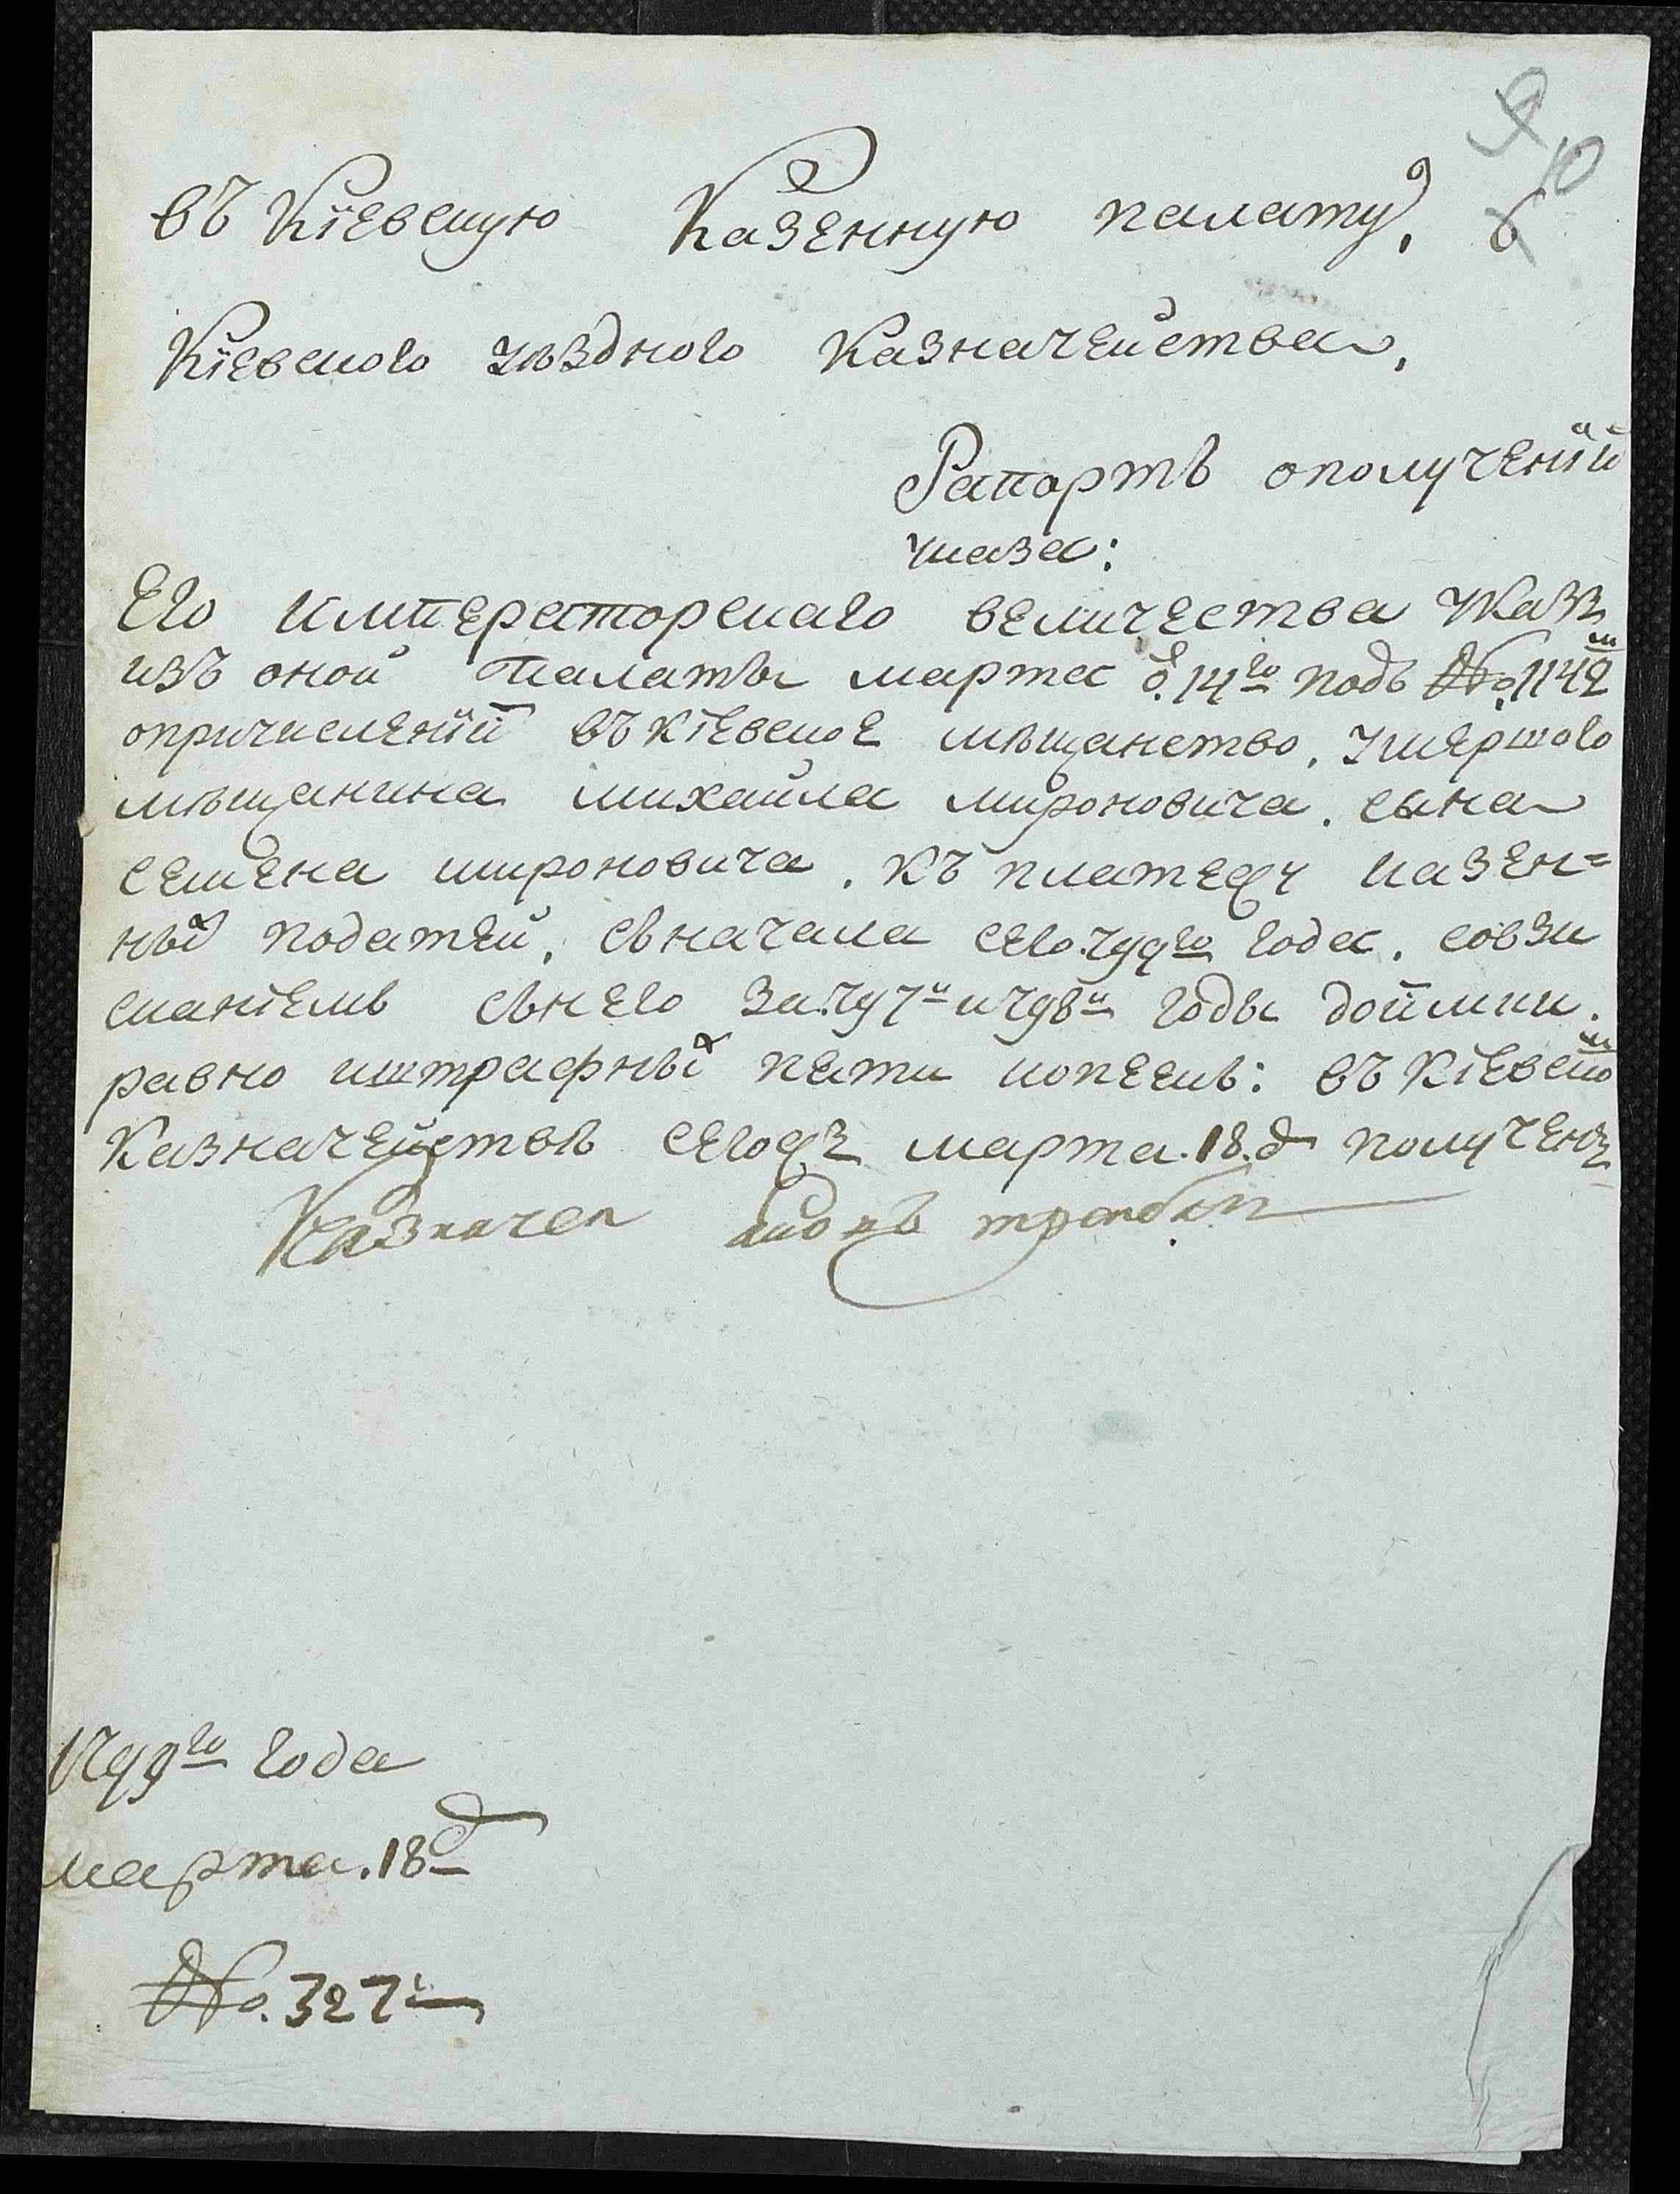 9
10
въ Кіевскую Казенную палату, 6
Кіевского уѣздного Казначейства,
Рапортъ ополученіи
указа:
Его императорскаго величества указъ
изъ оной палаты марта 14го подъ №. 1142м
опричисленіи въ кіевское мѣщанство, умершого
мѣщанина михаила мироновича. сына
семена мироновича. къ платежу казен=
ных податей, сначала сего 799го года. совзи
сканіемъ снего за 797й и 798й годы доимки.
равно иштрафных пяти копеекъ: въ Кіевском
Казначействѣ сегожъ марта. 18. д полученъ
Казначей
1799го года
марта. 18 д
№. 327й